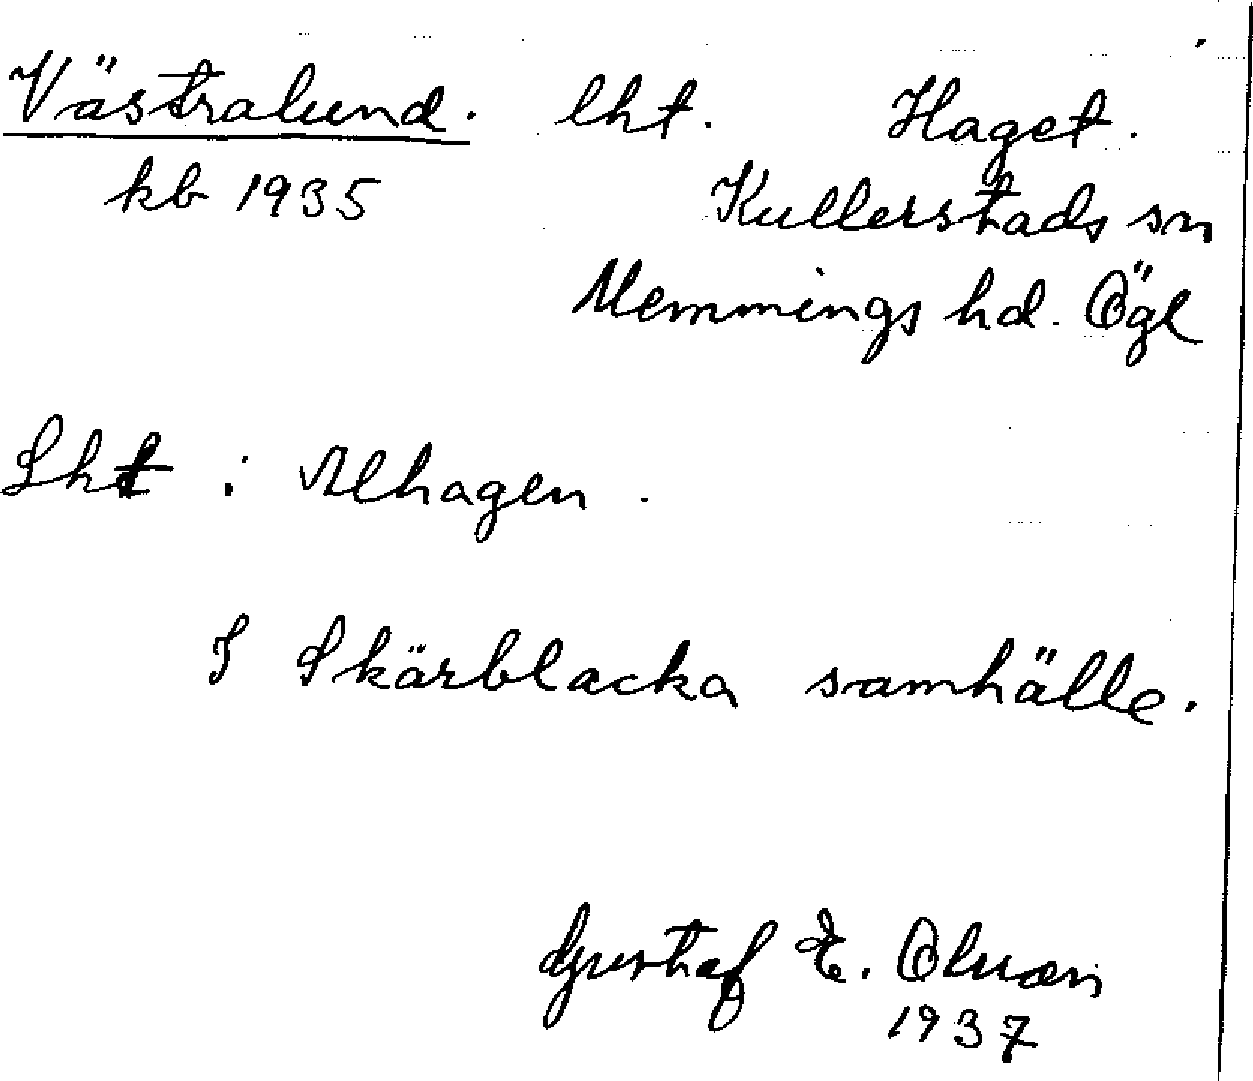 Västralund. lht. Haget.
kb 1935 Kullerstads sn
Memmings hd. Ögl
Lht i Alhagen.
I Skärblacka samhälle.
Gustaf E. Olsson
1937